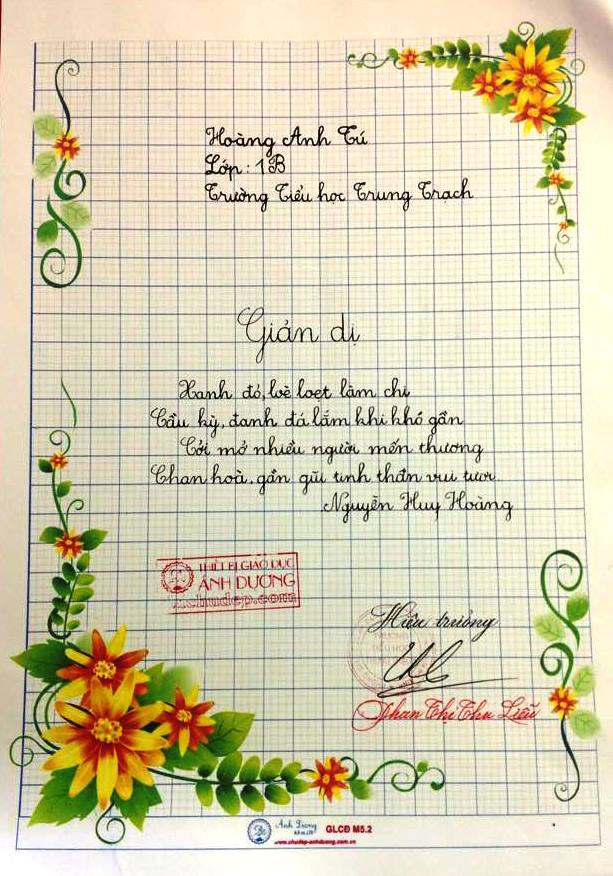 Hoàng Anh Tú
Lớp : 1B
Trường Tiểu học Trung Trạch
Giản dị
Xanh đỏ, loè loẹt làm chi
Cầu kỳ, đanh đá lắm khi khó gần
Cởi mở nhiều người mến thương
Chan hoà, gần gũi tinh thần vui tươi.
Nguyễn Huy Hoàng
THIẾT BỊ GIÁO DỤC
ÁNH DƯƠNG
chudep.com
Hiệu trưởng
Phan Thị Thu Liễu
Ánh Dương
GLCĐ M5.2
www.chudep-anhduong.com.vn